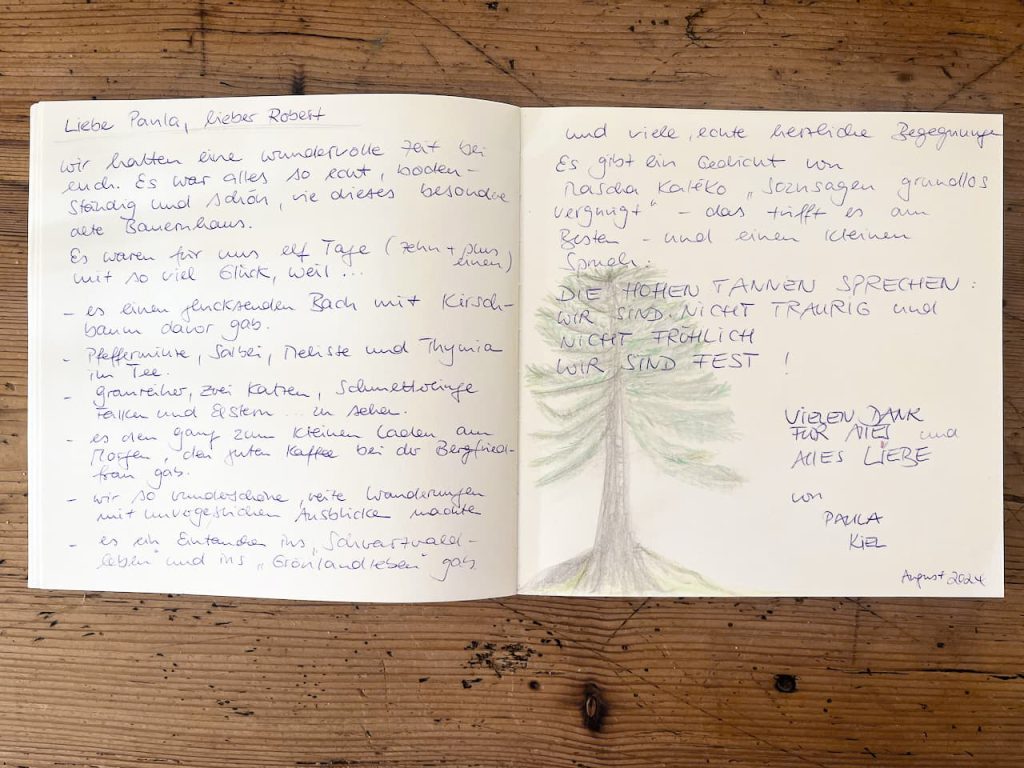 Liebe Paula, lieber Robert
wir hatten eine wundervolle Zeit bei
euch. Es war alles so echt, boden-
ständig und schön, wie dieses besondre
alte Bauernhaus.
Es waren für uns elf Tage (zehn + plus
einen)
mit so viel Glück, weil ...
- es einen glucksenden Bach mit Kirsch-
baum davor gab.
- Pfefferminze, Salbei, Melisse und Thymia
im Tee.
- Graureiher, zwei Katzen, Schmetterlinge
Falken und Elstern ... zu sehen.
- es den Gang zum kleinen Laden am
Morgen, den guten Kaffee bei der Bergfried-
frau gab.
- wir so wunderschöne, weite Wanderungen
mit unvergesslichen Ausblicken machten
- es ein Eintauchen ins "Schwarzwald-
leben" und ins "Grönlandleben" gab
und viele, echte herzliche Begegnungen
Es gibt ein Gedicht von
Mascha Kaléko "Sozusagen grundlos
vergnügt" - das trifft es am
Besten - und einen kleinen
Spruch:
DIE HOHEN TANNEN SPRECHEN:
WIR SIND NICHT TRAURIG und
NICHT FRÖHLICH
WIR SIND FEST !
VIELEN DANK
FÜR und
ALLES LIEBE
von
PAULA
KIEL
August 2024